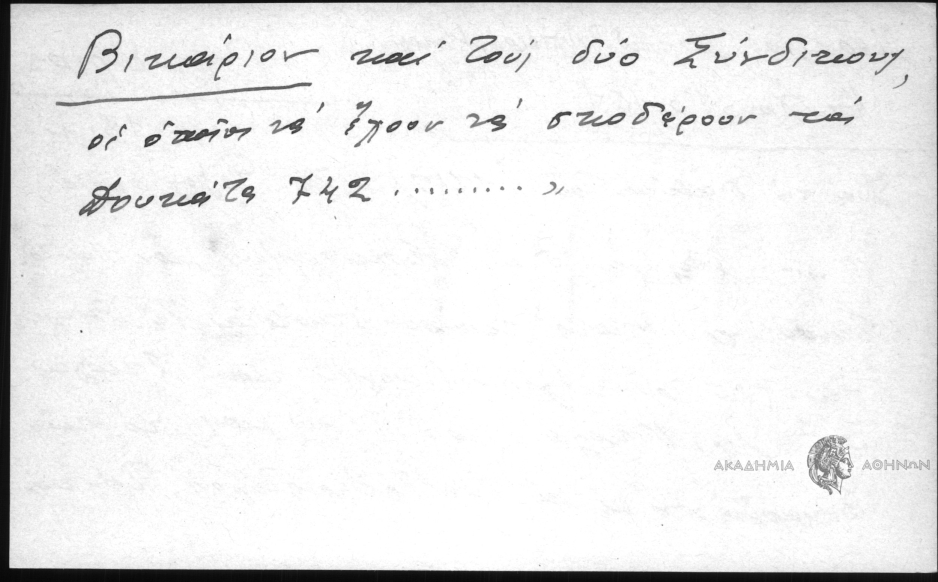 Βικάριον καί τούς δύο Σύνδικους,
οἱ ὁποῖοι νά ἔχουν νά σκοδέρουν τά
Δουκάτα 742 ......... »
ΑΚΑΔΗΜΙΑ ΑΘΗΝΩΝ